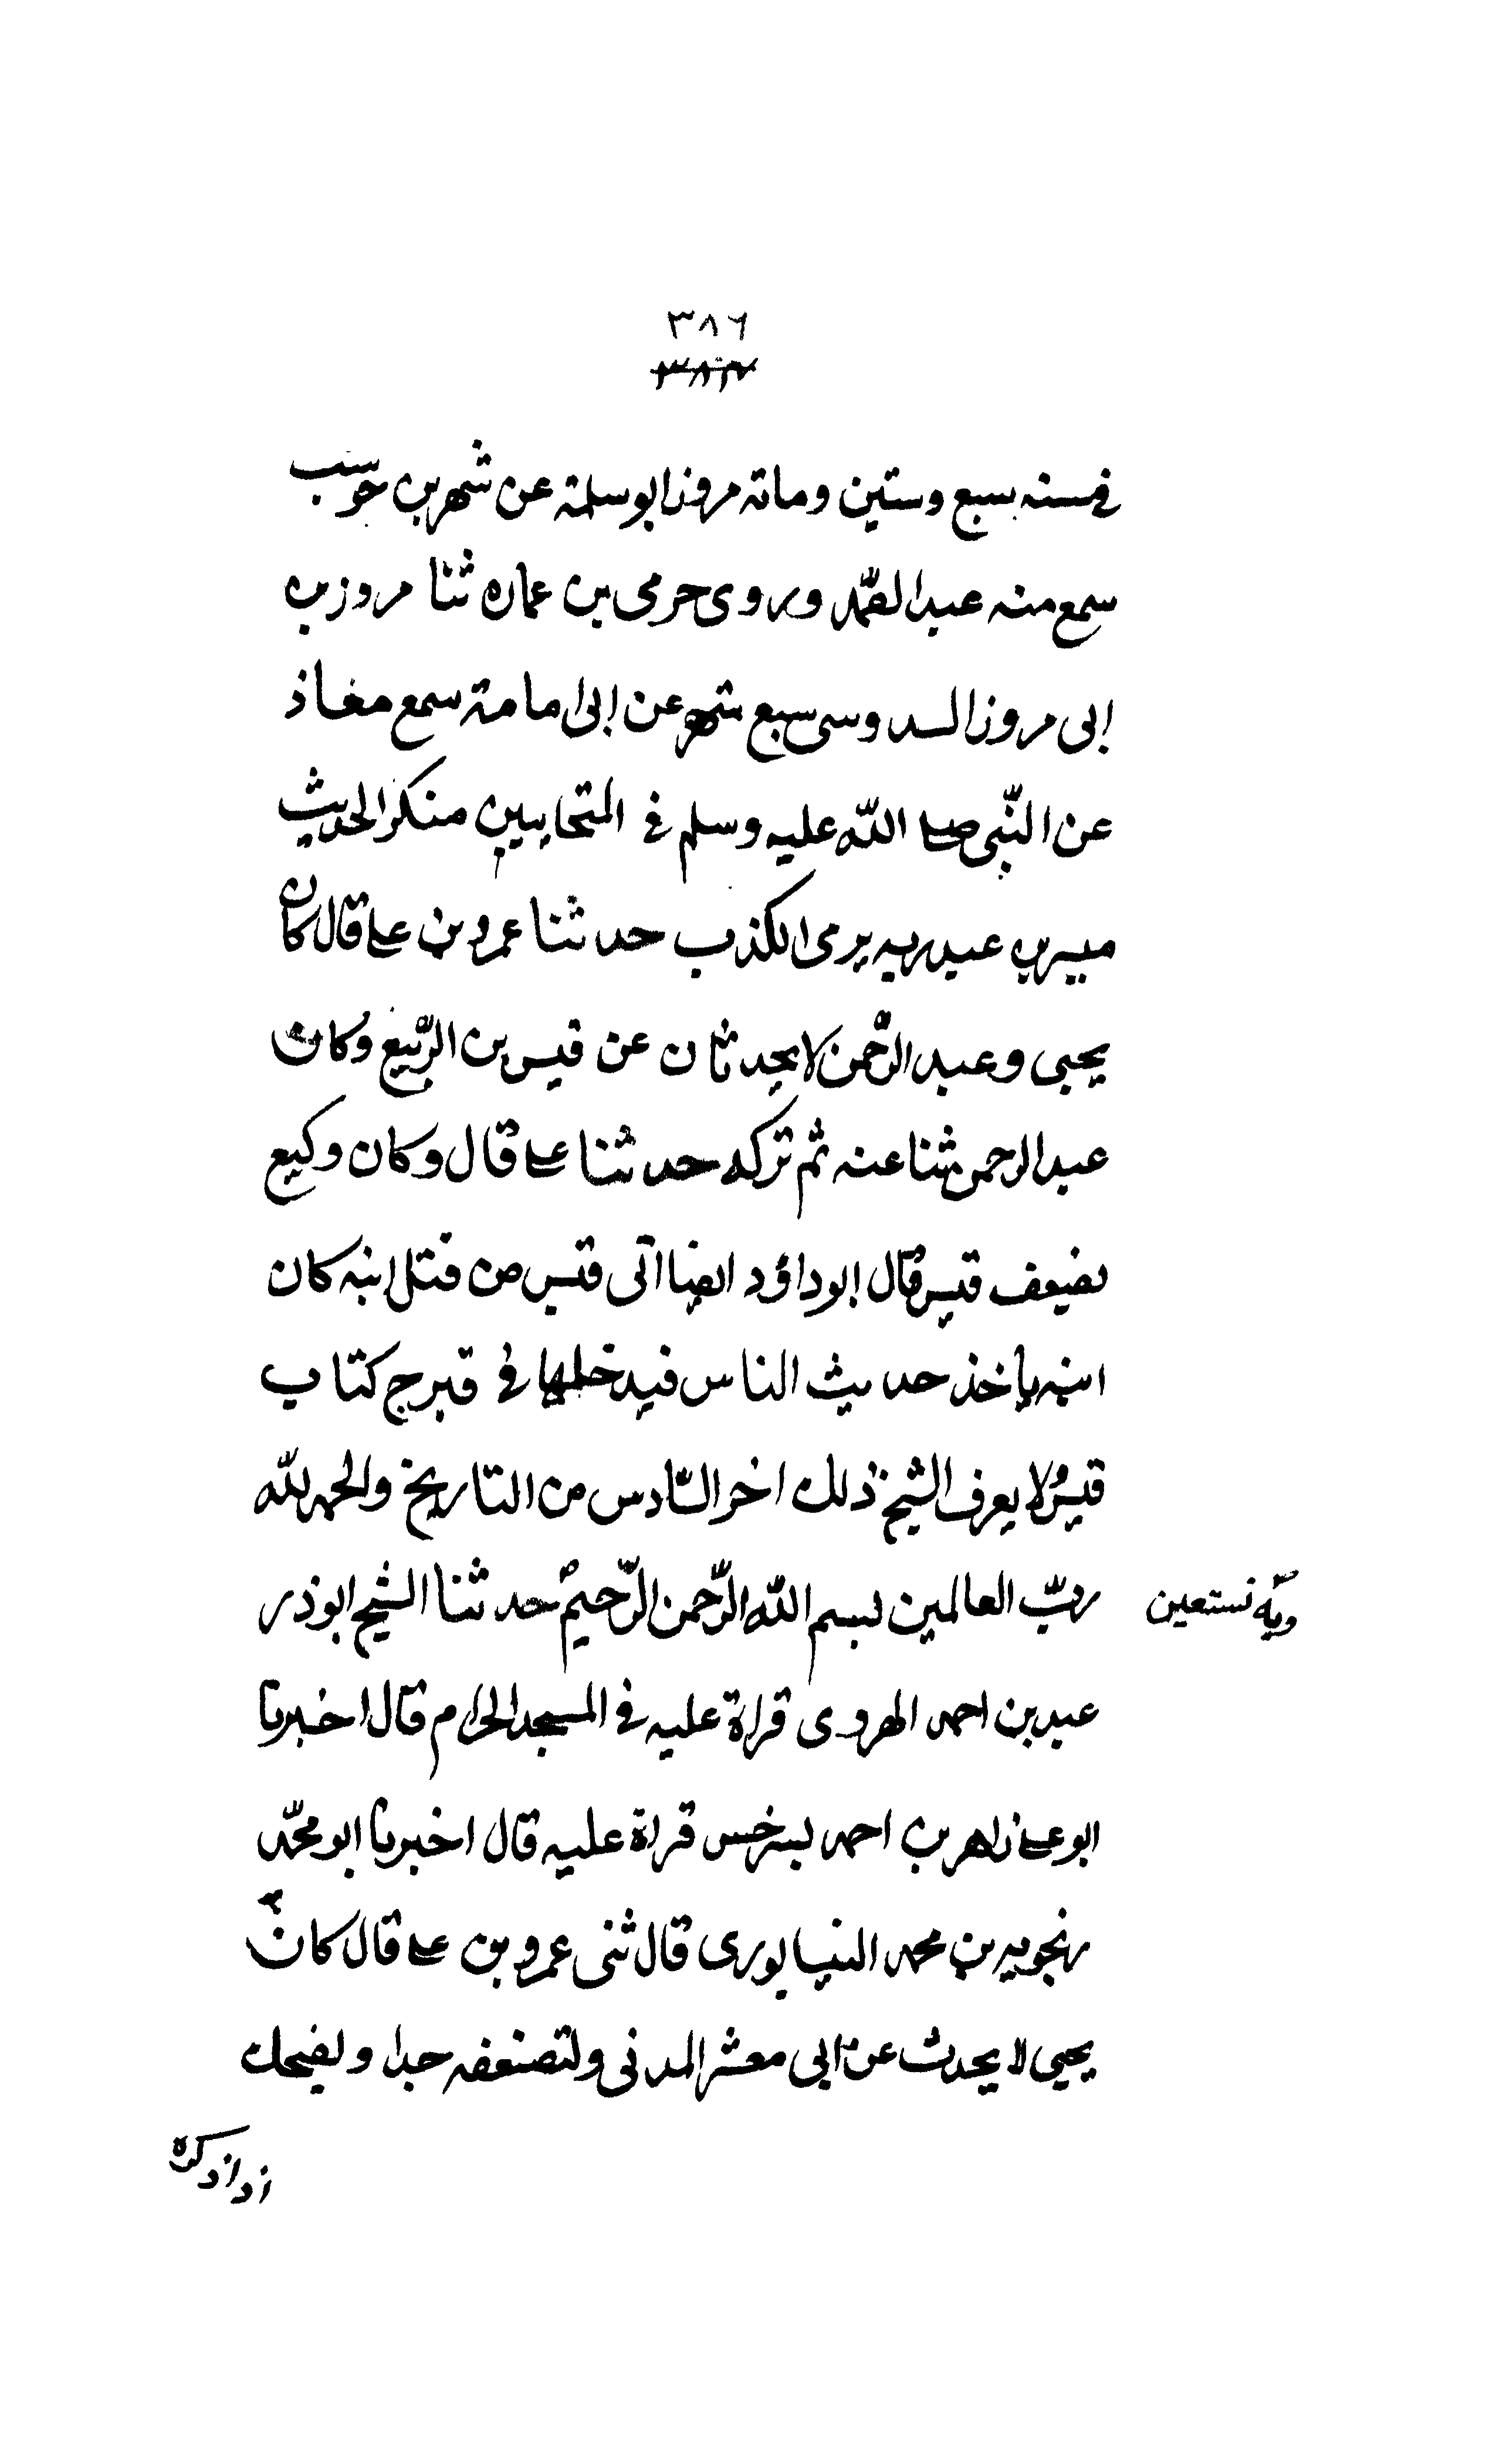 ٣٨٦
٣٨٧
فى سنه سبع وستين ومائة مرزوق ابو سلمة عن شهر بن حوشب
سمع منه عبد الصمد وروى حرمى بن عماره ثنا مروز بن
ابى مروز السدوسى سبع شهر عن ابى امامة سمع معاذ
عن النبى صلى الله عليه وسلم فى المتحابين منكر الحديث
ميسر بن عبد ربه يرمى الكذب حدثنا عمرو بن على قال كان
يحيى وعبد الرحمن لا يحدثان عن قيس بن الربيع وكان
عبد الرحمن ثنا عنه ثم تركه حدثنا على قال وكان وكيع
يضعف قيس قال ابو داؤد ايضا اتى قيس من قتل ابنه كان
ابنه ياخذ حديث الناس فيدخلها فى قبرج كتاب
قيس لا يعرف الشيخ ذلك اخر السّادس من التاريخ والحمد لله
ربّ العالمين بسم الله الرّحمن الرّحيم حدثنا الشيخ ابو ذر
وبه نستعين
عبد بن احمد الهروى قراة عليه فى المسجد الحرام قال اخبرنا
ابو على زاهر بن احمد بسرخس قراة عليه قال اخبرنا ابو محمّد
زنجويه بن محمد النيسابورى قال ثنى عمرو بن على قال كان
يحيى لا يحدث عن ابى معشر المدنى ولتصنعفه جدا ويضحك
اذا ذكره